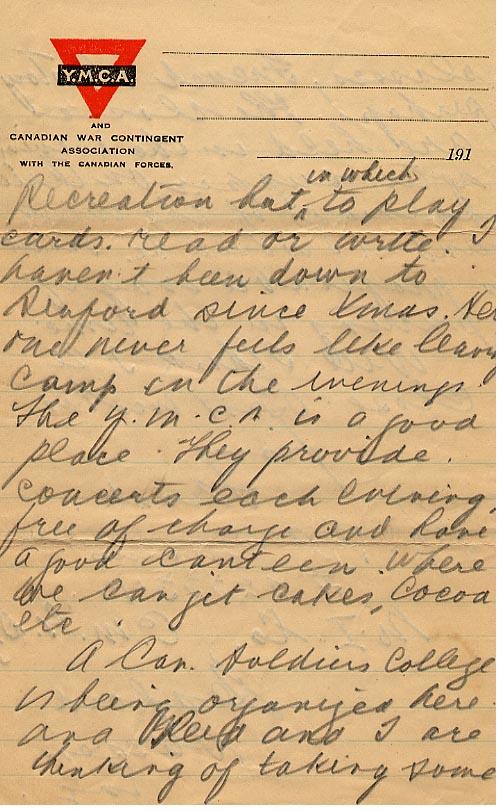 Y.M.C.A.
AND
CANADIAN WAR CONTINGENT
ASSOCIATION
WITH THE CANADIAN FORCES.
191
in which
Recreation hut ^ to play
cards. read or write. I
haven't been down to
Seaford since Xmas. Her
one never feels like leavg
Camp in the evenings.
The Y.M.C.A. is a good
place. They provide.
concerts each evening,
free of charge and have
a good canteen where
we can get cakes, cocoa
etc.
A Can. Soldiers College
is being organized here
and Reid and I are
thinking of taking some